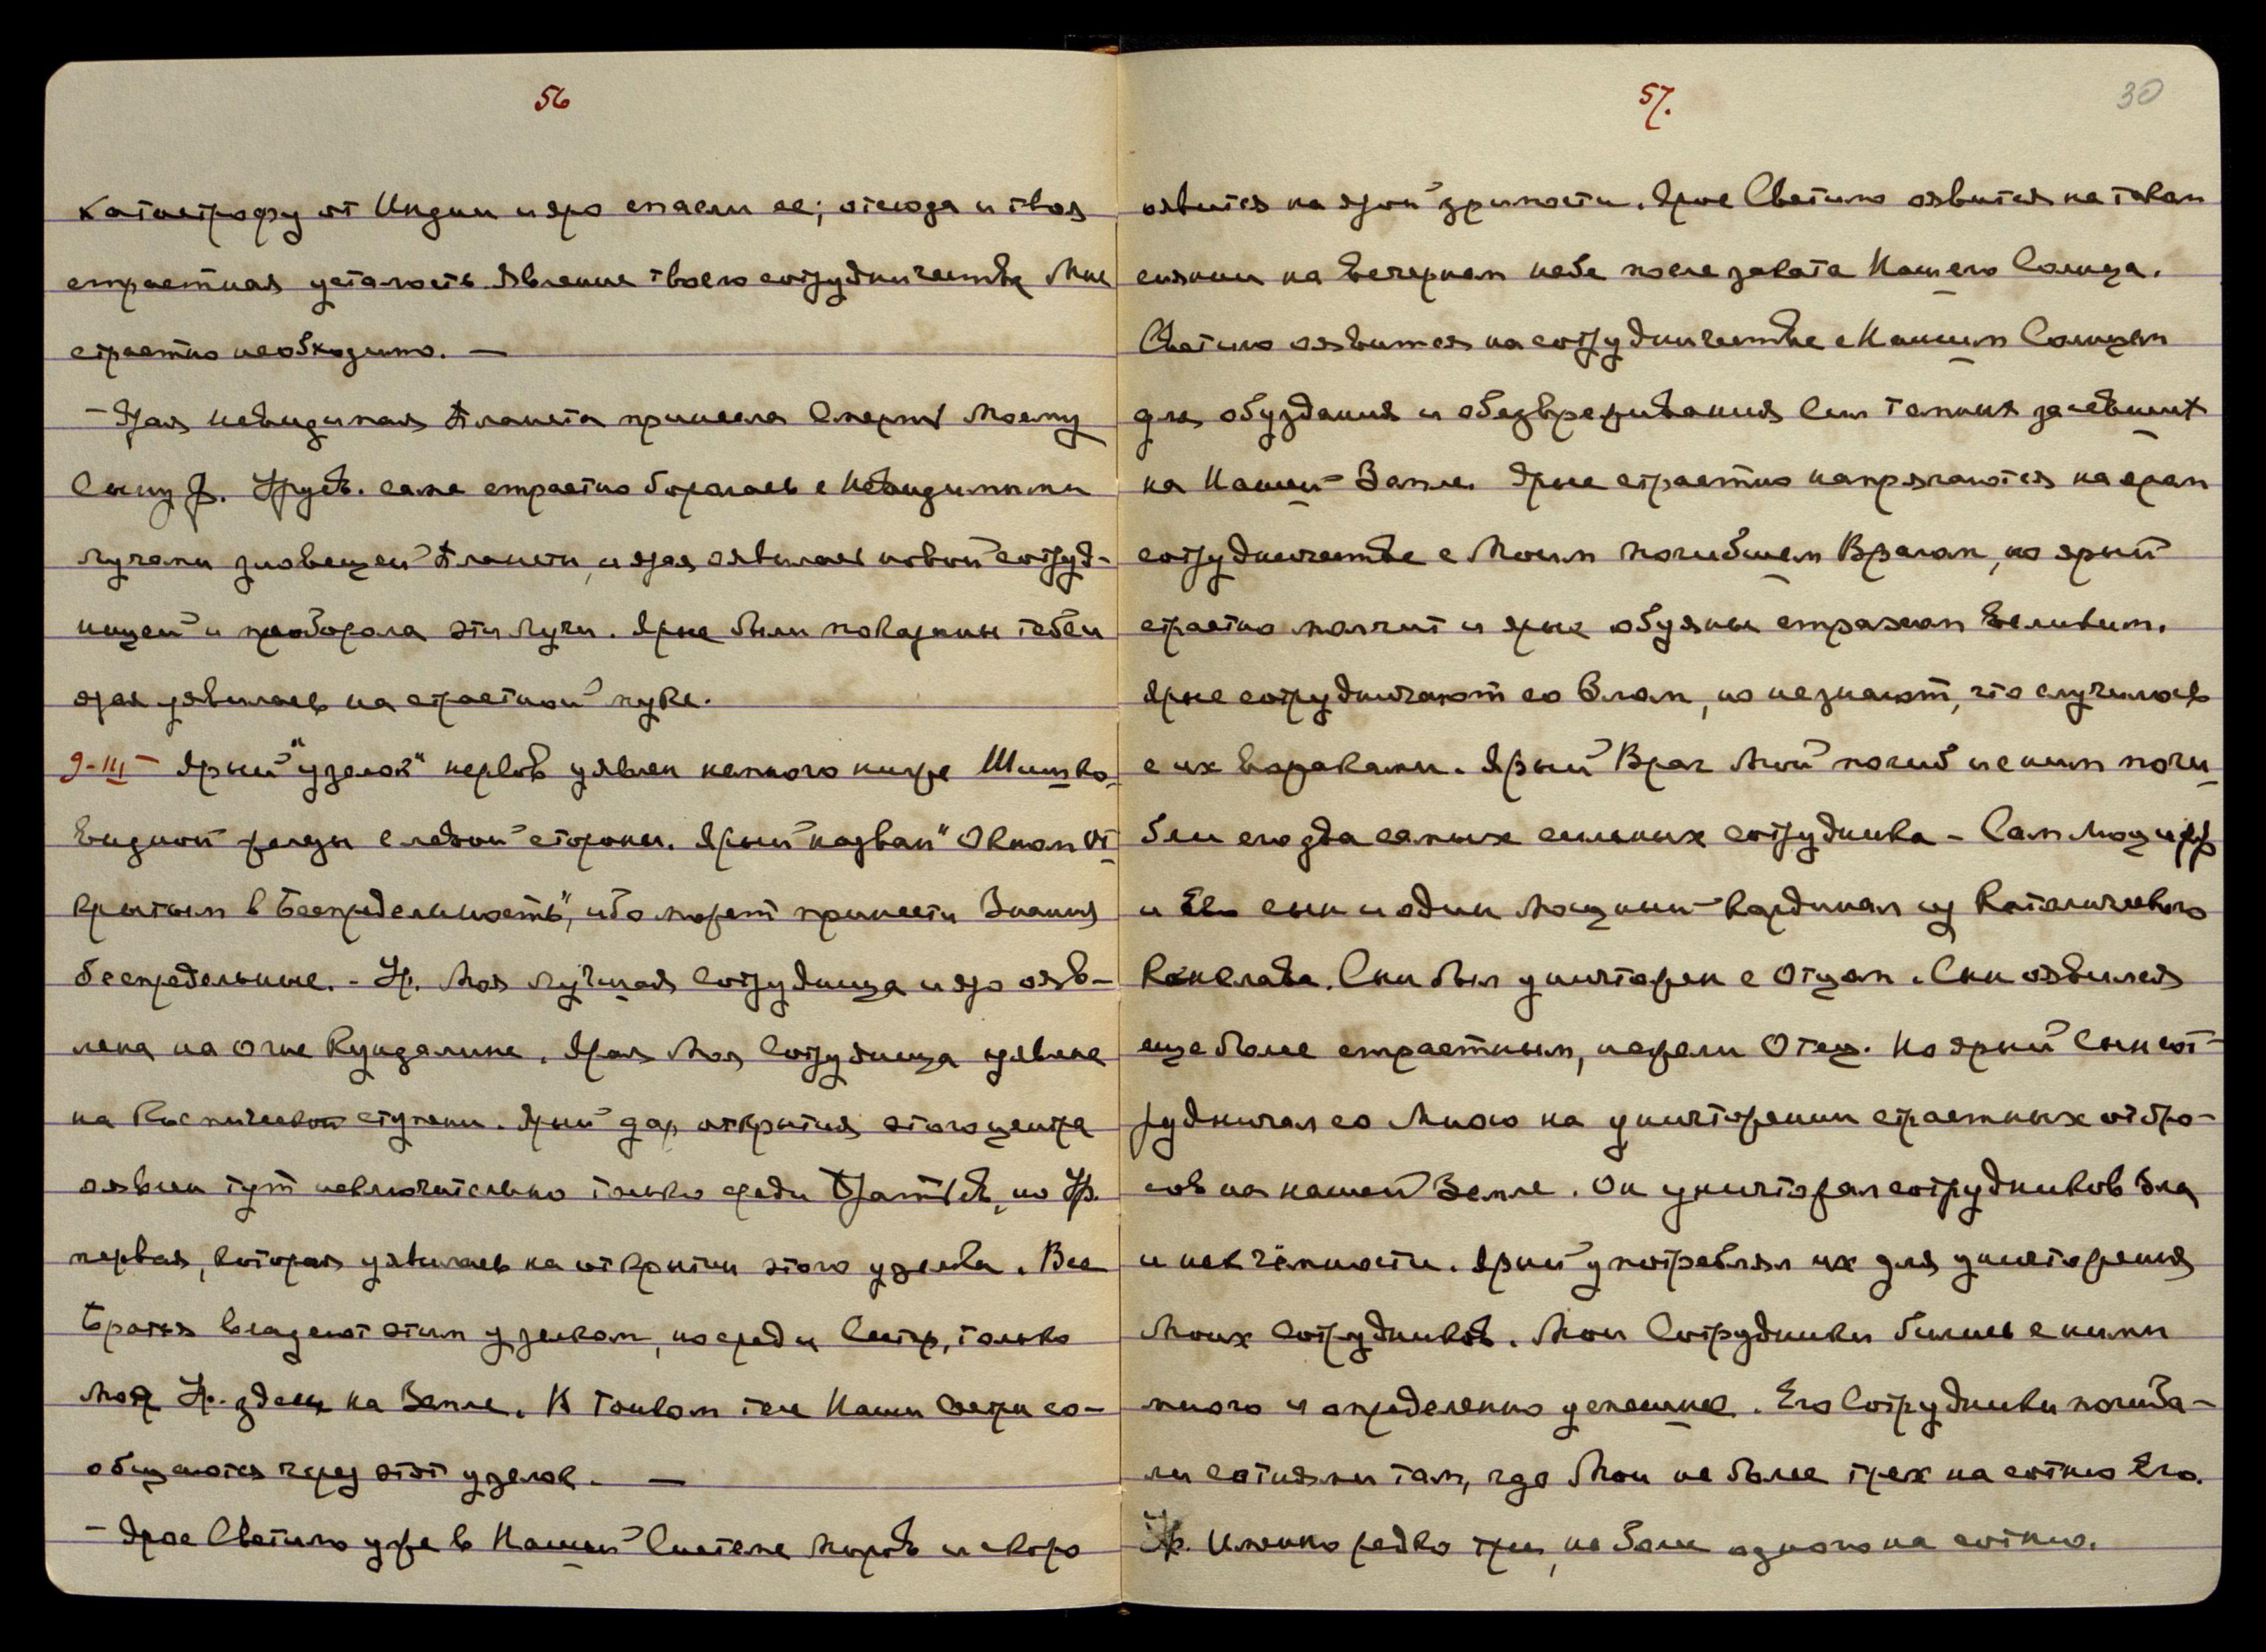 56
катастрофу от Индии и яро спасли ее; отсюда и твоя
страстная усталость. Явление твоего сотрудничества Мне
страстно необходимо. —
- Ярая невидимая Планета принесла Смерть Моему
Сыну Ф. Урусв. сама страстно боролась с Невидимыми
лучами зловещей Планеты, и ярая оявилась новой сотруд-
ницей и преоборола эти Лучи. Ярые были показаны тебе и
ярая уявилась на страстной муке.
9-III - Ярый "узелок" нервов уявлен немного ниже Шишко-
видной железы с левой стороны. Ярый назван "Окном от
крытым в Беспредельность", ибо может принести Знания
беспредельные. - Ур. Моя лучшая Сотрудница и яро ояв-
лена на Огне Кундалини. Ярая Моя Сотрудница уявлена
на Космической ступени. Ярый дар открытия этого центра
оявлен тут исключительно только среди Братьев, но Ур.
первая, которая уявилась на открытии этого узелка. Все
Братья владеют этим узелком, но среди Сестр, только
Моя Ур. здесь на Земле. В Тонком теле Наши Сестры со-
общаются через этот узелок. —
- Ярое Светило уже в Нашей Системе Миров и скоро
57.
30
оявится на ярой зримости. Ярое Светило оявится на таком
сиянии на Вечернем небе после заката Нашего Солнца.
Светило оявится на сотрудничестве с Нашим Солнцем
для обуздания и обезвреживания Сил темных засевших
на Нашей Земле. Ярые страстно напрягаются на яром
сотрудничестве с Моим погибшем Врагом, но ярый
страстно молчит и ярые обуяны страхом великим.
Ярые сотрудничают со Злом, но не знают, что случилось
с их Вожаками. Ярый Враг Мой погиб и с ним поги
бли его два самых сильных сотрудника - Сам
и Его сын и один Мощный кардинал из Католического
Конклава. Сын был уничтожен с Отцом. Сын оявился
еще более страстным, нежели Отец. Но ярый Сын сот-
рудничал со Мною на уничтожении страстных отбро-
сов на нашей Земле. Он уничтожал сотрудников Зла
и никчёмности. Ярый употреблял их для уничтожения
Моих Сотрудников. Мои Сотрудники бились с ними
много и определенно успешнее. Его Сотрудники погиба-
ли сотнями там, где Мои не более трех на сотню Его.
Ур. Именно редко три, не более одного на сотню.